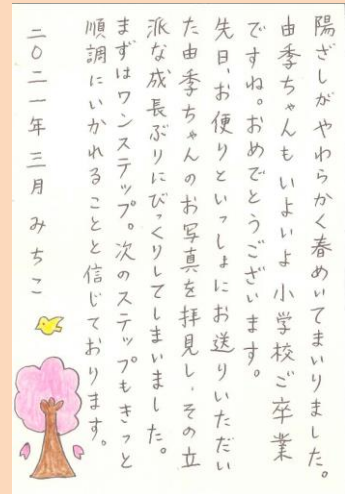 陽ざしがやわらかく春めいてまいりました。
由季ちゃんもいよいよ小学校ご卒業
ですね。おめでとうございます。
先日、お便りといっしょにお送りいただい
た由季ちゃんのお写真を拝見し、その立
派な成長ぶりにびっくりしてしまいました。
まずはワンステップ。次のステップもきっと
順調にいかれることと信じております。
二〇二一年三月みちこ